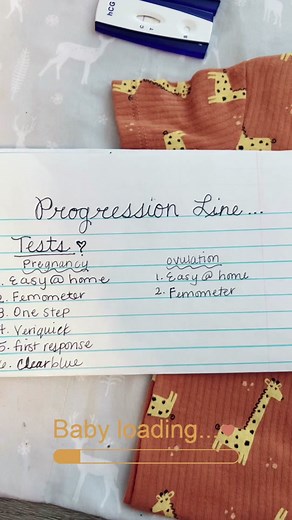 hCG
C
T
Progression Line...
Tests
Pregnancy
1. Easy@home
2. Femometer
3. One Step
4. Veriquick
5. first response
6. clearblue
ovulation
1. Easy@home
2. Femometer
Baby loading...